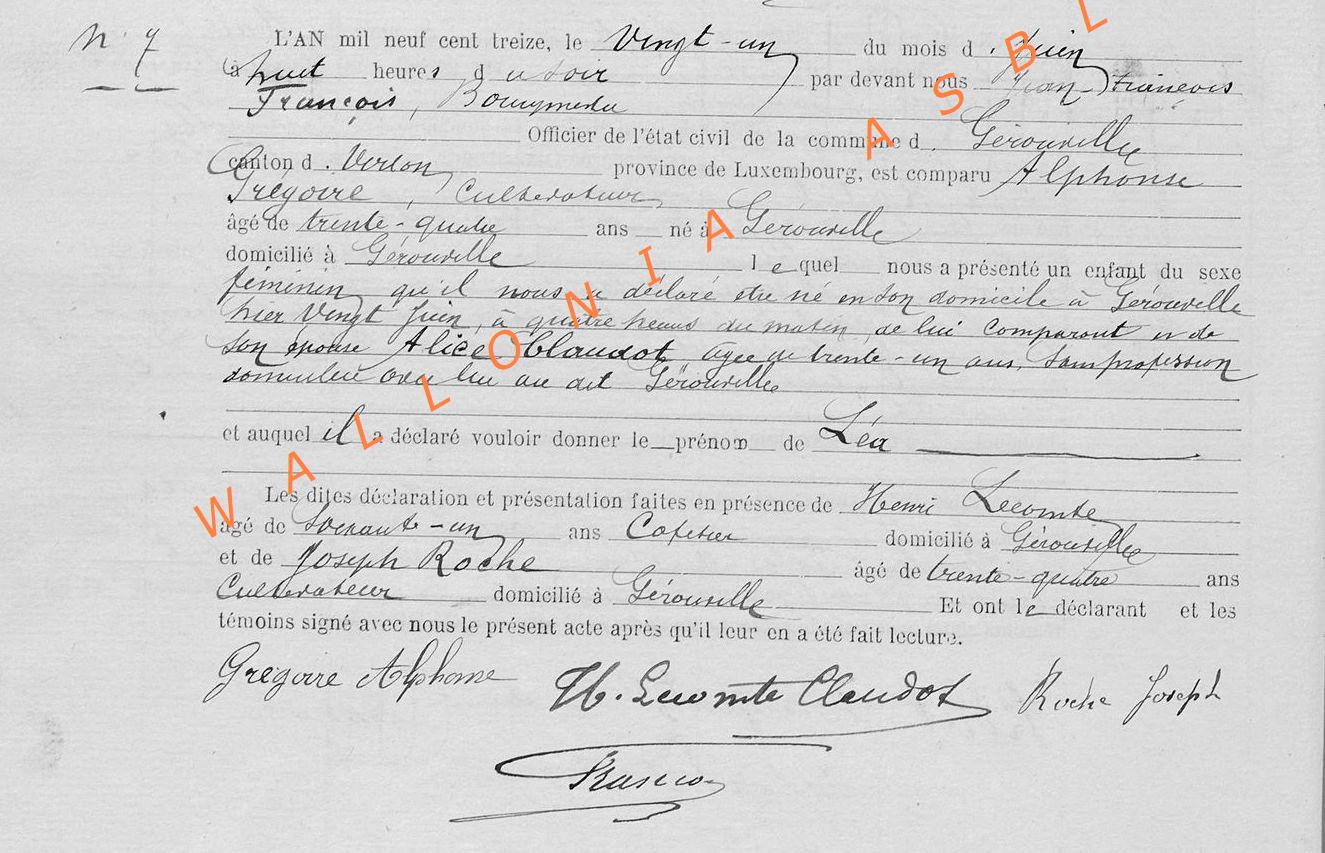 N° 7
L'AN mil neuf cent treize, le Vingt-un du mois d. Juin
à huit heures du soir par devant nous Jean François
François, Bourgmestre
Officier de l'état civil de la commune d. Gérouville
canton d. Virton province de Luxembourg, est comparu Alphonse
Grégoire, Cultivateur
âgé de trente-quatre ans né à Gérouville
domicilié à Gérouville lequel nous a présenté un enfant du sexe
féminin qu'il nous a déclaré être né en son domicile à Gérouville
hier Vingt Juin, à quatre heures du matin, de lui Comparant et de
son épouse Alice Claudot, âgée de trente-un ans, sans profession
domiciliée avec lui au dit Gérouville
et auquel il a déclaré vouloir donner le prénom de Léa
Les dites déclaration et présentation faites en présence de Henri Lecomte
âgé de Soixante-un ans Cafetier domicilié à Gérouville
et de Joseph Roche âgé de trente-quatre ans
Cultivateur domicilié à Gérouville Et ont le déclarant et les
témoins signé avec nous le présent acte après qu'il leur en a été fait lecture.
Grégoire Alphonse H. Lecomte Claudot Roche Joseph
WALLONIA ASBL